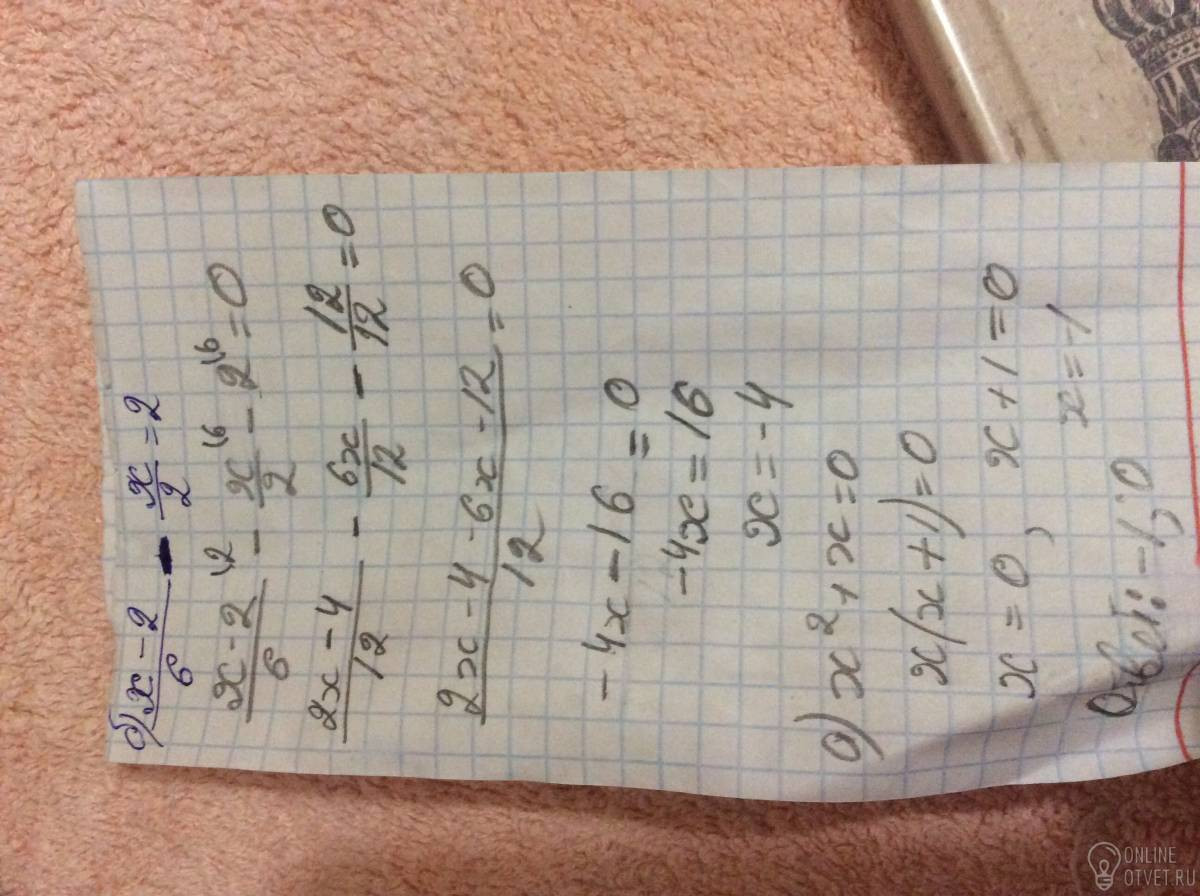 б) (x-2)/6 - x/2 = 2
(x-2)/6 \2 - x/2 \6 - 2 \6 = 0
(2x-4)/12 - 6x/12 - 12/12 = 0
(2x-4-6x-12)/12 = 0
-4x-16=0
-4x=16
x=-4
а) x²+x=0
x(x+1)=0
x=0, x+1=0
x=-1
Ответ: -1; 0
ONLINE
OTVET.RU